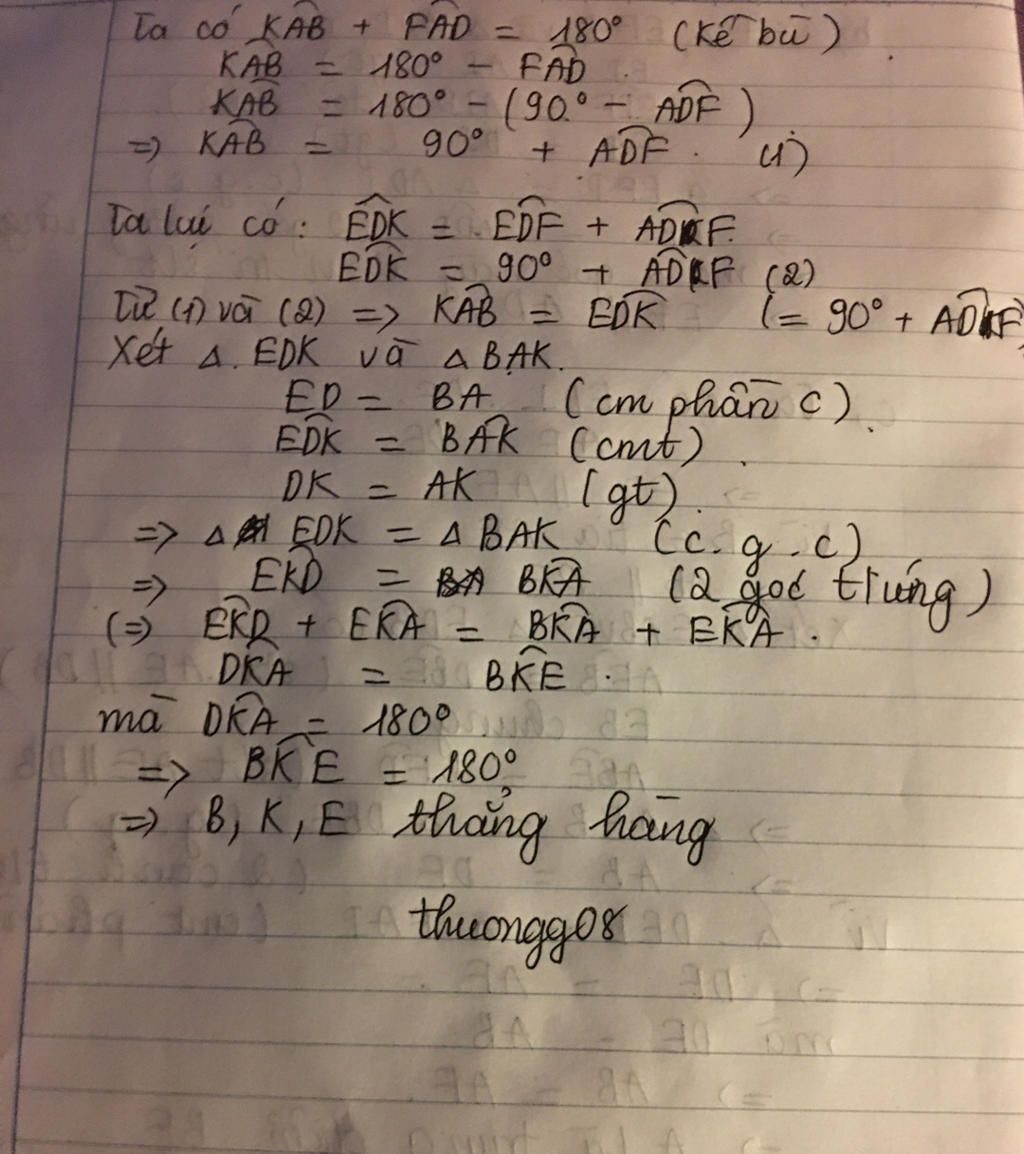 Ta có KAB + FAD = 180° (Kề bù).
KAB = 180° - FAD.
KAB = 180° - (90° - ADF)
=> KAB = 90° + ADF. (1)
Ta lại có: EDK = EDF + ADF.
EDK = 90° + ADF (2)
Từ (1) và (2) => KAB = EDK (= 90° + ADF)
Xét Δ EDK và Δ BAK.
ED = BA (cm phần c).
EDK = BAK (cmt).
DK = AK (gt).
=> Δ EDK = Δ BAK (c.g.c)
=> EKD = BKA (2 góc t/ứng)
(=> EKD + EKA = BKA + EKA.
DKA = BKE.
mà DKA = 180°
=> BKE = 180°
=> B, K, E thẳng hàng
thuongg08